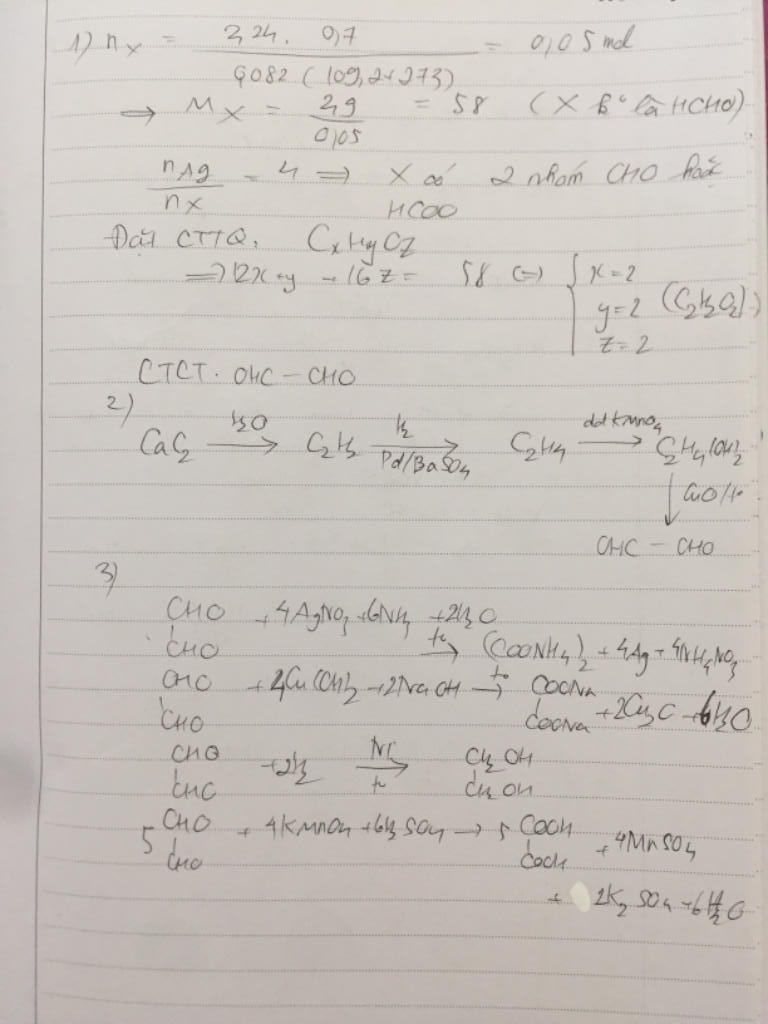 1) nx = 2,24. 0,7 / 0,082 (109,2+273) = 0,05 mol
⇒ Mx = 2,9 / 0,05 = 58 (X ko là HCHO)
nAg / nx = 4 ⇒ X có 2 nhóm CHO hoặc
HCOO
Đặt CTTQ, CxHyOz
⇒ 12x+y+16z = 58 ⇔ { x=2
y=2 (C2H2O2)
z=2
CTCT. OHC – CHO
2)
CaC2 →(H2O) C2H2 →(H2, Pd/BaSO4) C2H4 →(dd KMnO4) C2H4(OH)2
↓ CuO/to
OHC – CHO
3)
CHO +4AgNO3+6NH3 +2H2O
CHO →(to) (COONH4)2 + 4Ag + 4NH4NO3
CHO + 4Cu(OH)2 +2NaOH →(to) COONa
CHO COONa +2Cu2O +6H2O
CHO +2H2 →(Ni, to) CH2OH
CHO CH2OH
5 CHO + 4KMnO4 +6H2SO4 → 5 COOH + 4MnSO4
CHO COOH
+ 2K2SO4 +6H2O